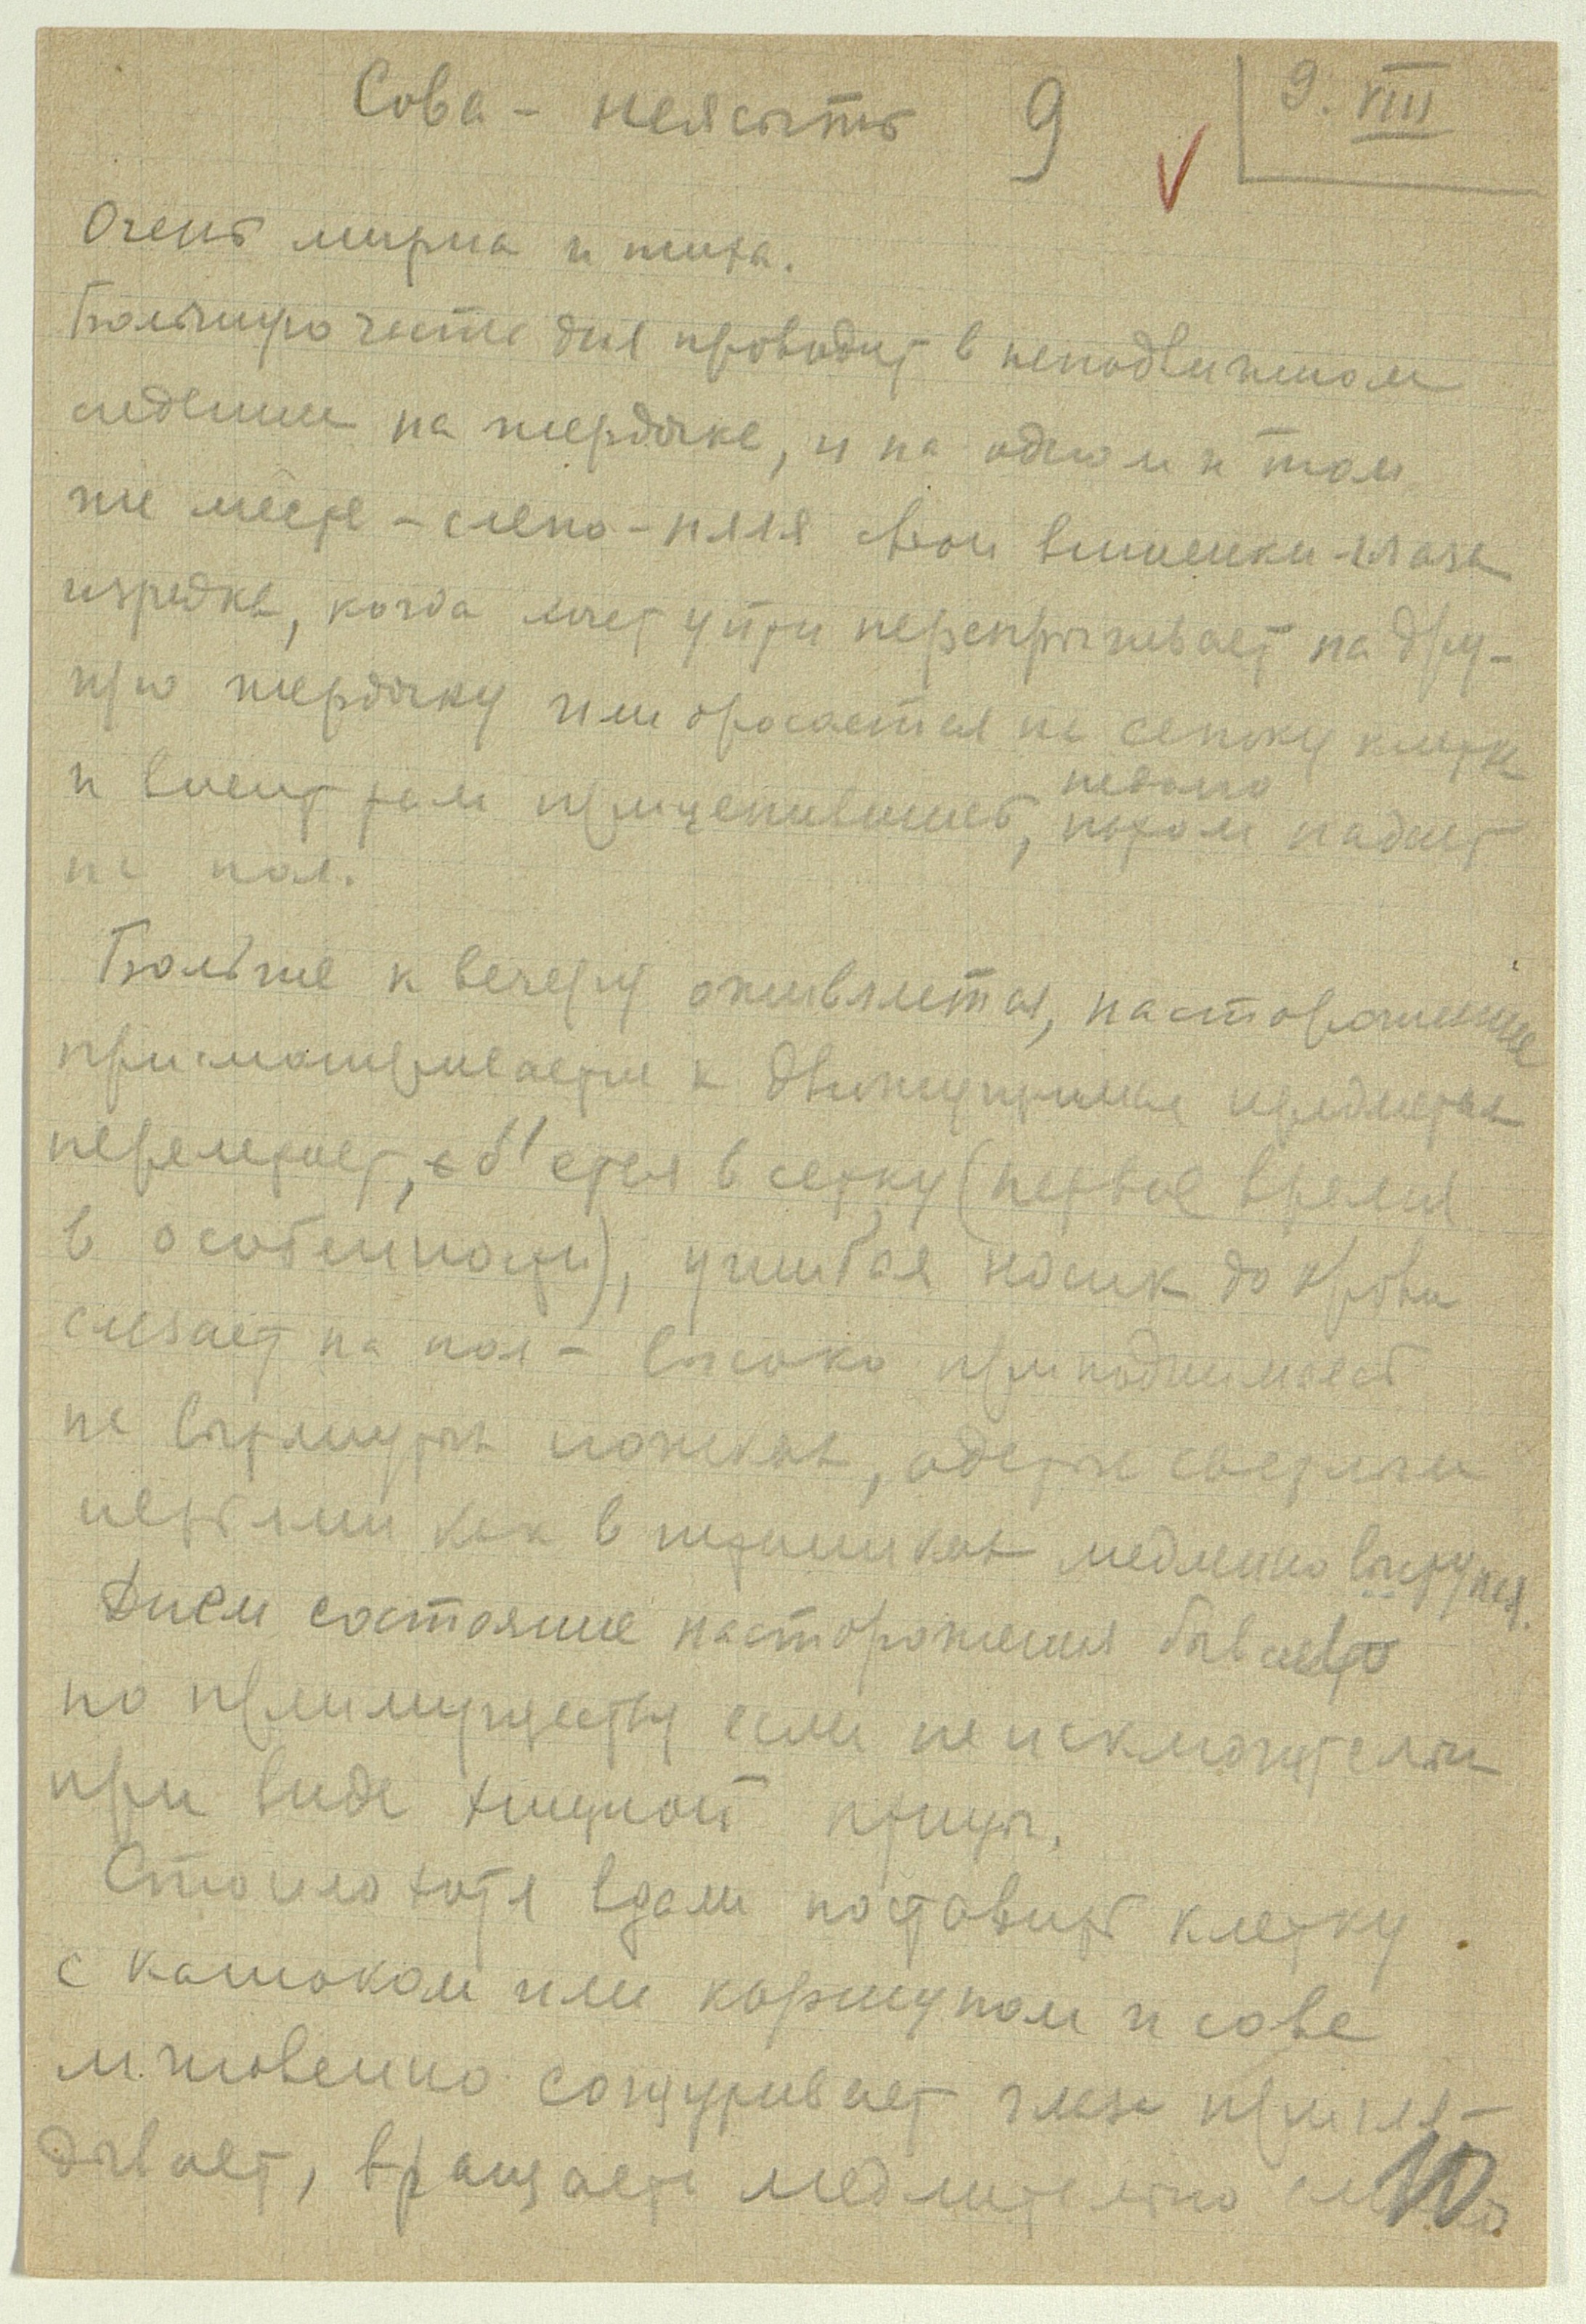 Сова - неясыть 9 9. VIII
Очень мирна и тиха.
Большую часть дня проводит в неподвижном
сидении на жердочке, и на одном и том
же месте - слепо - свои глаза
изредка, когда хочет уйти перепрыгивает на дру-
гую жердочку или бросается на сетку клетки
и висит там прицепившись, недолго
потом падает
на пол.
Больше к вечеру оживляется, настороженнее
присматривается к движущимся предметам
перелетает, бьется в сетку (первое время
в особенности), ушибая носик до крови
слезает на пол - высоко приподнимаясь
на вытянутых ножках, одетых светлыми
перьями как в штаниках медленно выступая.
Днем состояние насторожения бывает
по преимуществу если не исключительно
при виде хищной птицы.
Стоило хотя вдали поставить клетку
с канюком или коршуном и сова
мгновенно сощуривает глаза пригля-
дывает, вращает медлительно
10